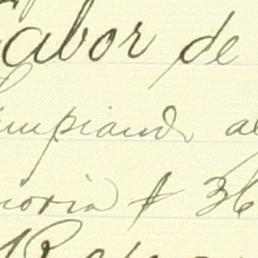 Labor de
limpiando al
noria $ 36